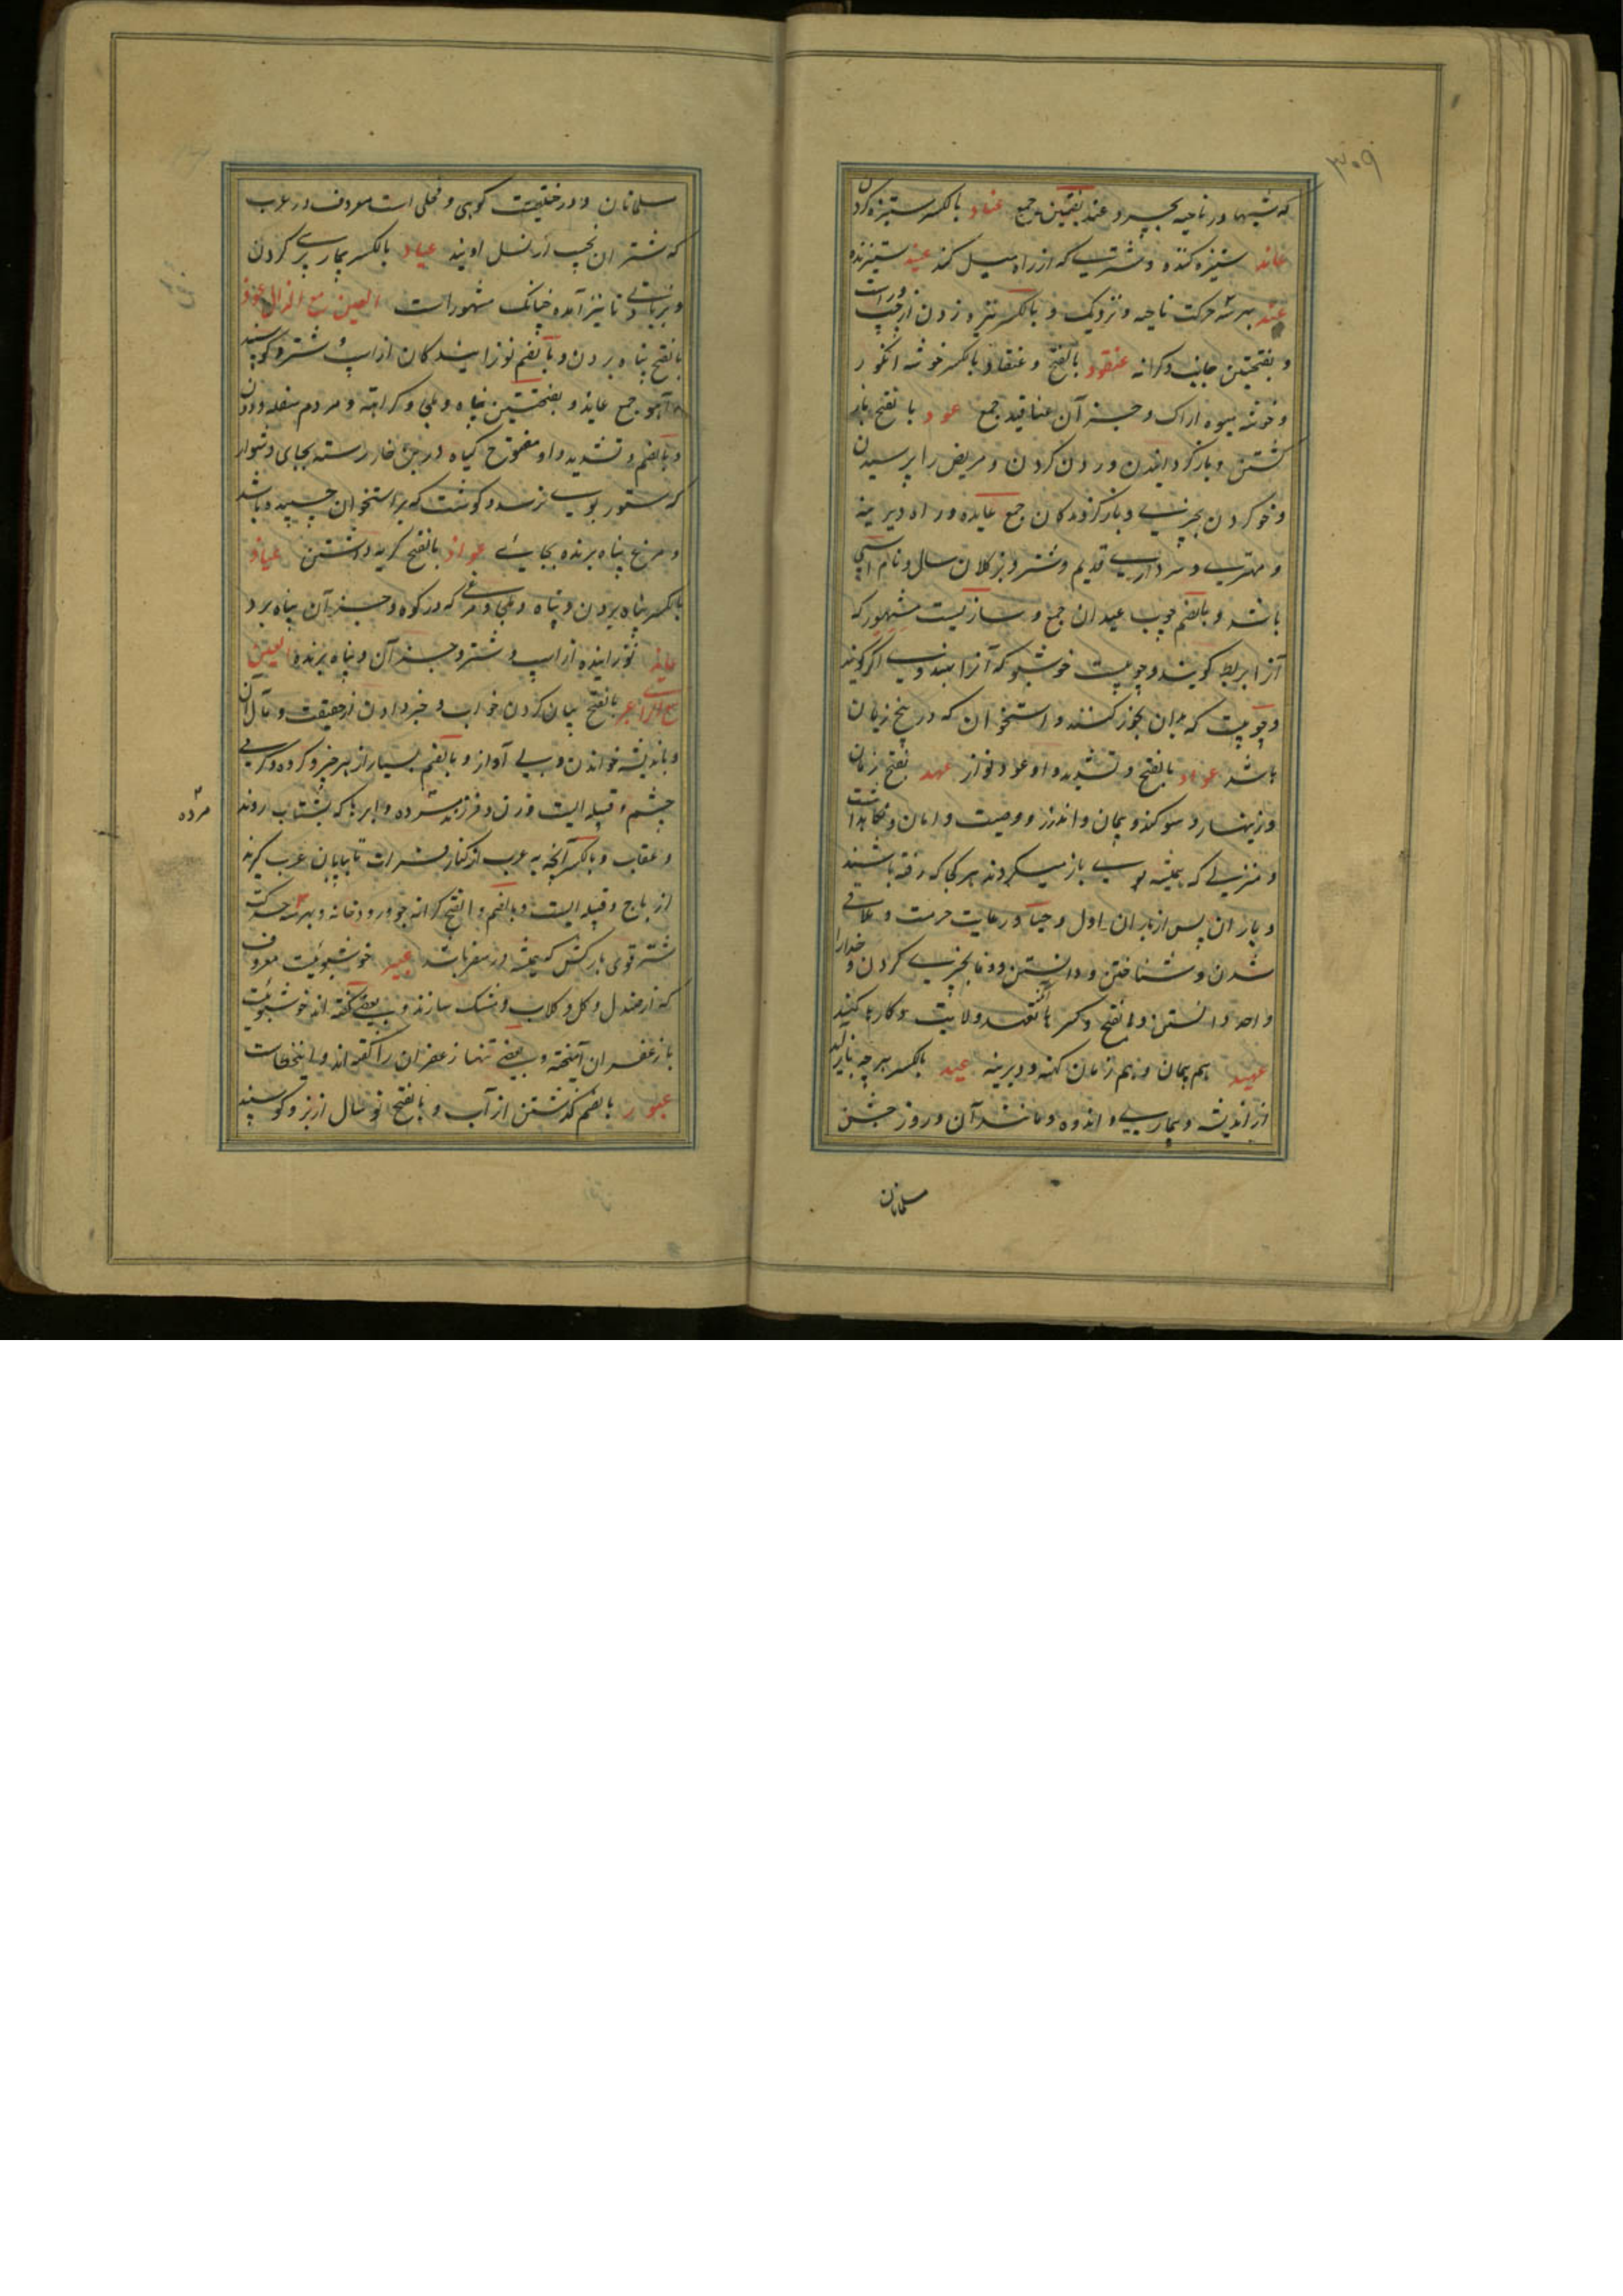 ۳۰۹
که شبها در ناحیه بچرد و عند بضمتین جمع عناد بالکسر ستیزه کردن
عاند ستیزه کننده و شتری که از راه میل کند عنید ستیزنده
عند بهر سه حرکت ناحیه و نزدیک و بالکسر نیزه زدن از چپ و راست
و بفتحتین جانب و کرانه عنقود بالضم و عنقاد بالکسر خوشه انگور
و خوشه میوه اراک و جز آن عناقید جمع عود بالفتح باز
گشتن و باز گردانیدن و رد کردن و مریض را پرسیدن
و خو کردن بچیزی و باز گردندکان جمع عایده و راه دیرینه
و مهتری و سرداری قدیم و شتر و بز کلان سال و نام اسپی
باشد و بالضم چوب عیدان جمع و سازیست مشهور که
آنرا بربط کویند و چوبیست خوشبو که آنرا بهندی اگر کویند
و چوبیست که بدان بخور کنند و استخوان که در بیخ زبان
باشد عواد بالفتح و تشدید واو عود نواز عهد بفتح زمان
و زینهار و سوکند و پیمان و اندرز و وصیت و امان و نگاهداشت
و منزلی که همیشه بوی باز میکردند هر کجا که رفته باشند
و باران پس از باران اول و حیا و رعایت حرمت و ملاقی
شدن و شناختن و دانستن و وفا بچیزی کردن و خدارا
واحد دانستن و بفتح و کسر ها متعهد ولایت و کارها کنید
عهید هم پیمان و هم زمان کهنه و دیرینه عید بالکسر هر چه باز آید
از اندیشه و بیماری و اندوه و مانند آن و روز جشن
مسلمانان
مسلمانان و در حقیقت کوهی و فحلی است معروف در عرب
که شتران نجیب از نسل اویند عیاد بالکسر بیمار پرسی کردن
و بزیادتی تا نیز آمده چنانکه مشهور است العین مع الذال عوذ
بالفتح پناه بردن و بالضم نوزایندکان از اسپ و شتر و کوسپند
و آهو جمع عایذ و بفتحتین پناه و ملجا و کراهت و مردم سفله و دون
و بالضم و تشدید واو مفتوح کیاه در بن خار رسته بجای دشوار
که ستور بوی نرسد و کوشت که بر استخوان چسپیده باشد
و مرغ پناه برنده بجایی عواذ بالفتح کریه داشتن عیاذ
بالکسر پناه بردن و پناه و ملجا و مرغی که در کوه و جز آن پناه برد
عایذ نوزاینده از اسپ و شتر و جز آن و پناه برنده العین
مع الرا عبر بالفتح بیان کردن خواب و خبر دادن از حقیقت و مآل آن
و باندیشه خواندن و بی آواز و بالضم بسیار از هر چیز و کروه و کرمی
چشم و قبیله ایست و زن فرزند مرده و ابرها که بشتاب روند
مرده
و عقاب و بالکسر آنچه به عرب از کنار فرات تا بیابان عرب کیرند
از باج و قبیله ایست و بالضم و الفتح کرانه جو و رودخانه و بهر سه حرکت
شتر قوی بارکش که همیشه در سفر باشد عبیر خوشبوئیست معروف
که از صندل و کل و کلاب و مشک سازند و بعضی گفته اند خوشبوئیست
با زعفران آمیخته و بعضی تنها زعفران را گفته اند و این خطاست
عبور بالضم کذشتن از آب و بالفتح نوسال از بز و کوسپند